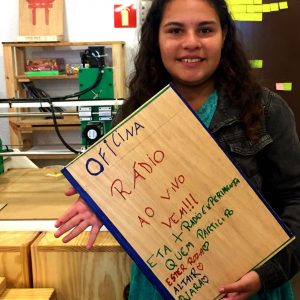 OFICINA
RÁDIO
AO VIVO
VEM!!!
ETA + RADIOEXPERIMENTA
QUEM PARTICIPÃO
ESTER ROSA
ALTAIR